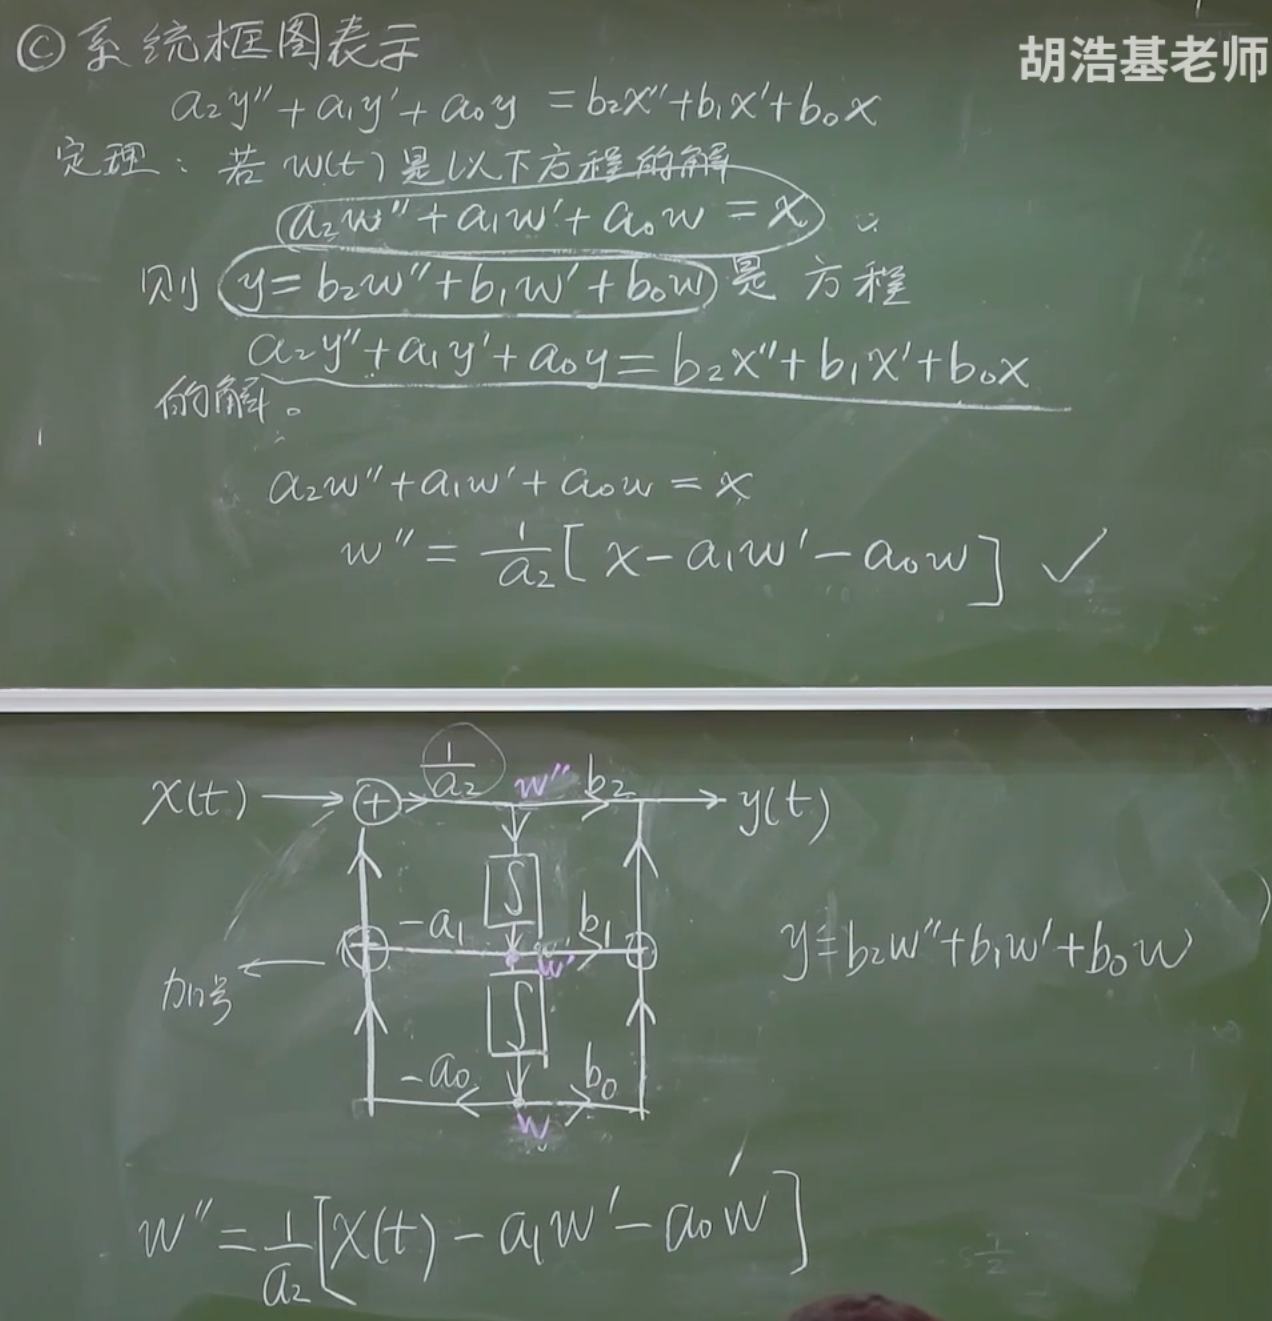 Ⓒ系统框图表示
胡浩基老师
a₂y″+a₁y′+a₀y=b₂x″+b₁x′+b₀x
定理：若w(t)是以下方程的解
a₂w″+a₁w′+a₀w=x
则 y=b₂w″+b₁w′+b₀w 是方程
a₂y″+a₁y′+a₀y=b₂x″+b₁x′+b₀x
的解。
a₂w″+a₁w′+a₀w=x
w″=1/a₂[x-a₁w′-a₀w] ✓
x(t) + 1/a₂ w″ b₂ y(t)
∫
-a₁ b₁
+ w′ +
y=b₂w″+b₁w′+b₀w
加号
∫
-a₀ b₀
w
w″=1/a₂[x(t)-a₁w′-a₀w]